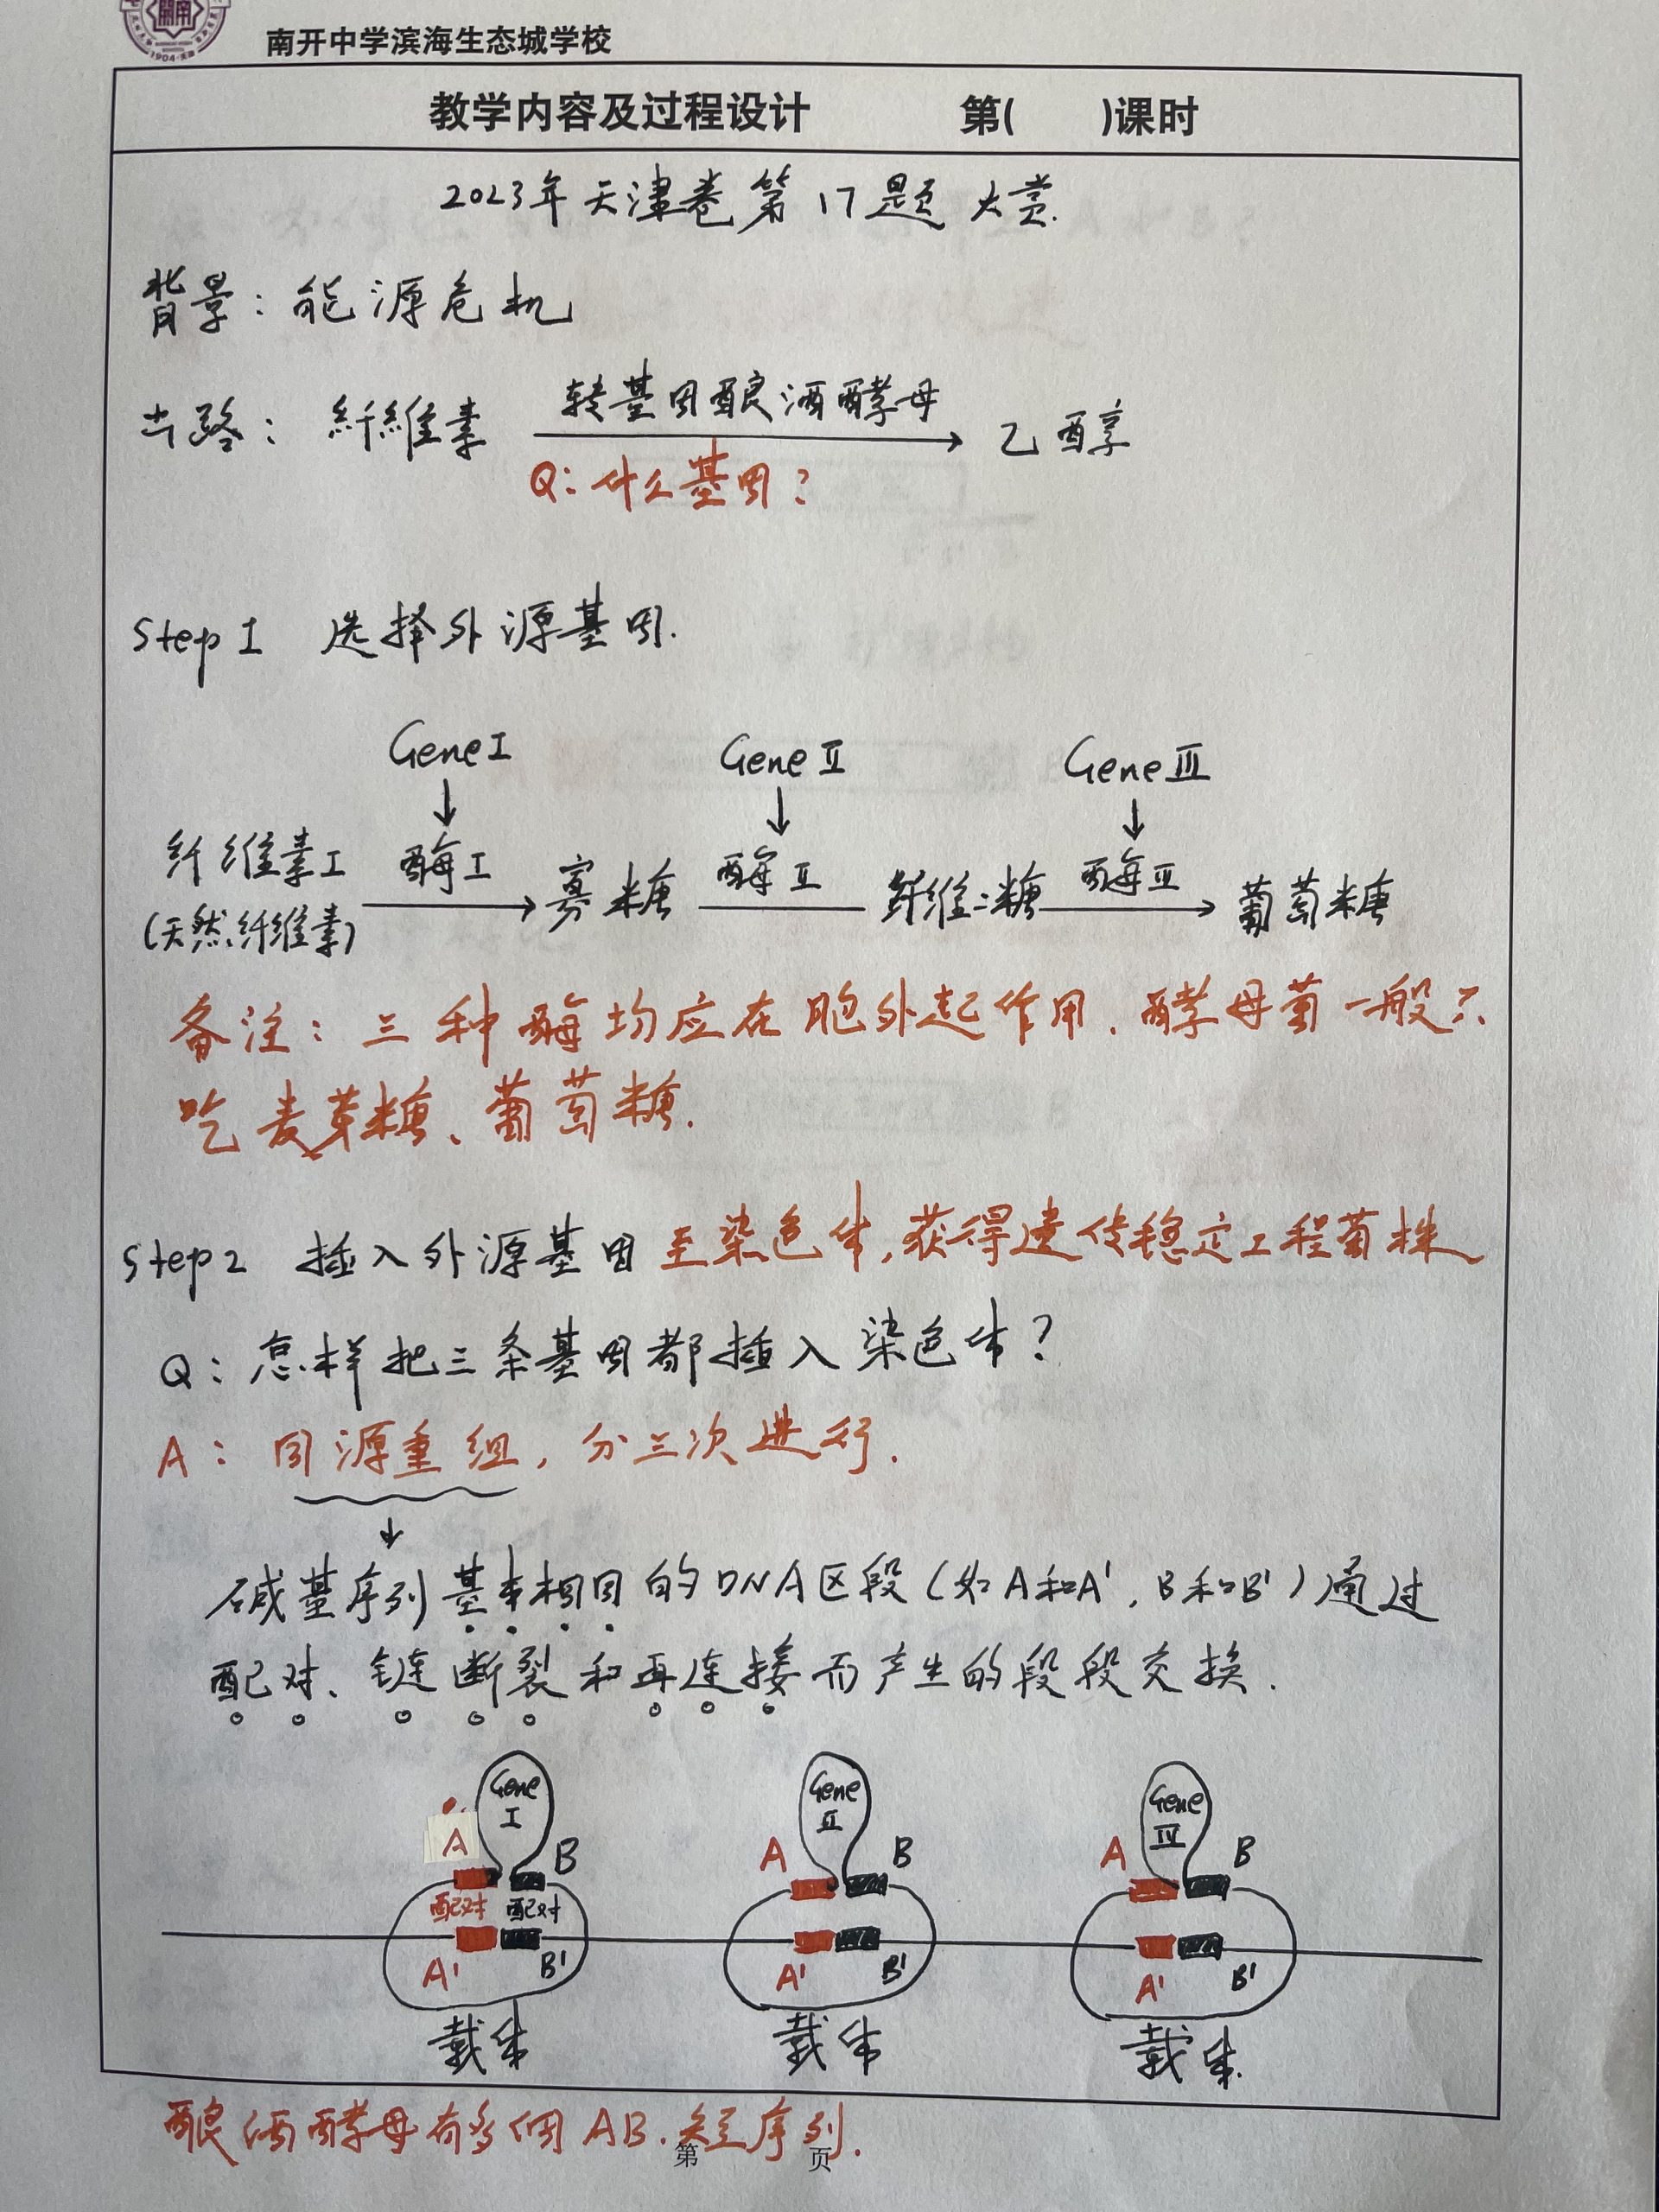 南开中学滨海生态城学校
1904
教学内容及过程设计 第( )课时
2023年天津卷第17题大赏.
背景：能源危机
出路：纤维素 转基因酿酒酵母 乙醇
Q：什么基因？
Step I 选择外源基因.
Gene I Gene II Gene III
纤维素I 酶I 寡糖 酶II 纤维二糖 酶III 葡萄糖
(天然纤维素)
备注：三种酶均应在胞外起作用.酵母菌一般只
吃麦芽糖、葡萄糖.
Step 2 插入外源基因至染色体,获得遗传稳定工程菌株
Q：怎样把三条基因都插入染色体？
A：同源重组，分三次进行.
碱基序列基本相同的DNA区段(如A和A',B和B')通过
配对、链断裂和再连接而产生的段段交换.
Gene I Gene II Gene III
A B A B A B
配对 配对
A' B' A' B' A' B'
载体 载体 载体.
酿酒酵母有多个AB.短序列.
第 页